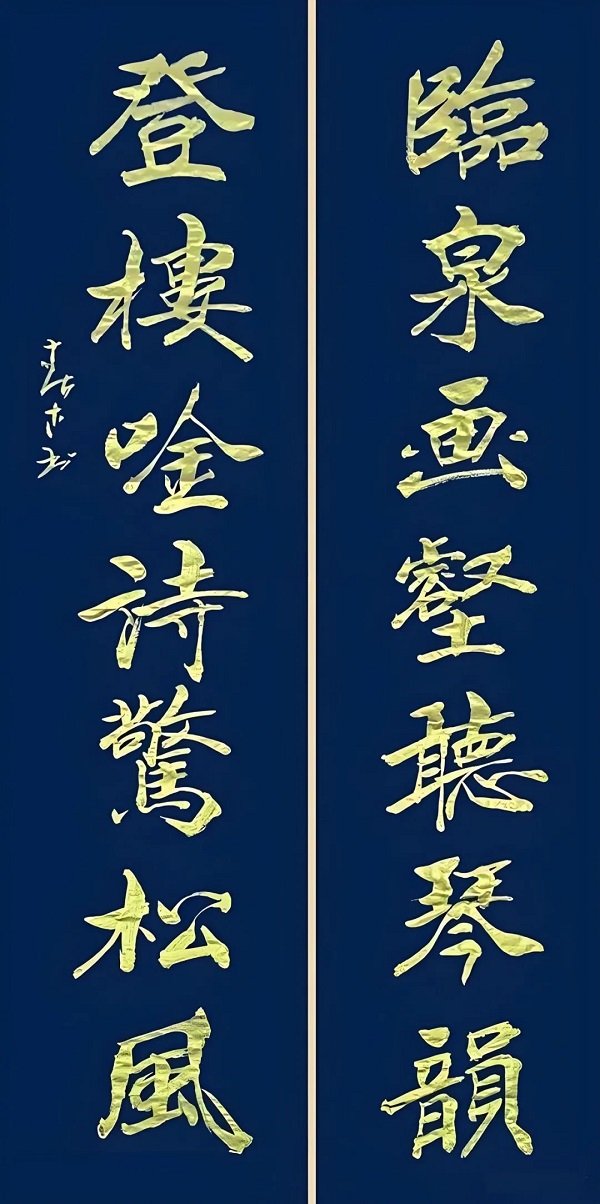 臨泉画壑聽琴韻
登樓唫詩驚松風